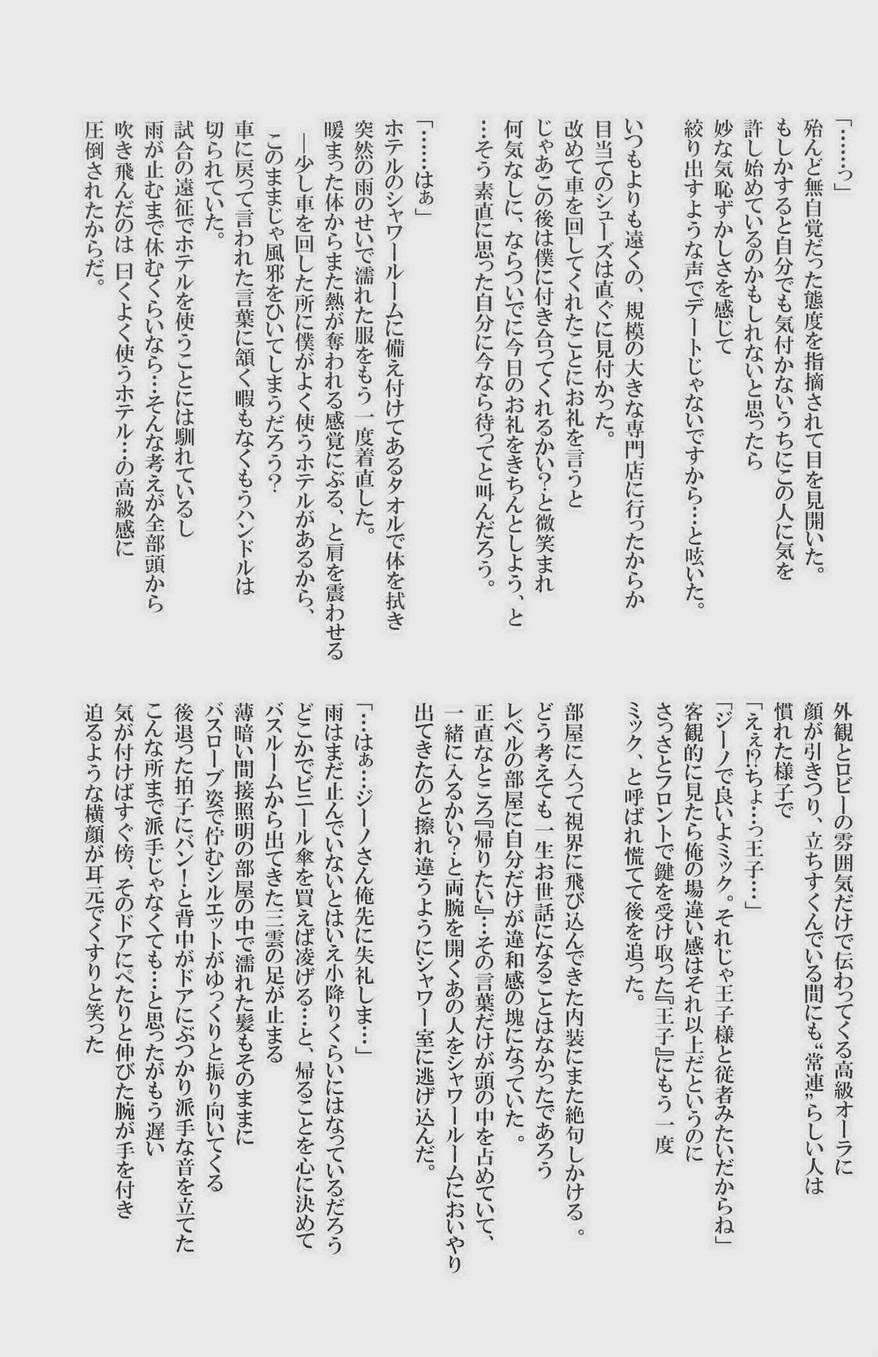 「……っ」
殆んど無自覚だった態度を指摘されて目を見開いた。
もしかすると自分でも気付かないうちにこの人に気を
許し始めているのかもしれないと思ったら
妙な気恥ずかしさを感じて
絞り出すような声でデートじゃないですから…と呟いた。
いつもよりも遠くの、規模の大きな専門店に行ったからか
目当てのシューズは直ぐに見付かった。
改めて車を回してくれたことにお礼を言うと
じゃあこの後は僕に付き合ってくれるかい?と微笑まれ
何気なしに、ならついでに今日のお礼をきちんとしよう、と
…そう素直に思った自分に今なら待ってと叫んだだろう。
「……はぁ」
ホテルのシャワールームに備え付けてあるタオルで体を拭き
突然の雨のせいで濡れた服をもう一度着直した。
暖まった体からまた熱が奪われる感覚にぶる、と肩を震わせる
―少し車を回した所に僕がよく使うホテルがあるから、
このままじゃ風邪をひいてしまうだろう?
車に戻って言われた言葉に頷く暇もなくもうハンドルは
切られていた。
試合の遠征でホテルを使うことには馴れているし
雨が止むまで休むくらいなら…そんな考えが全部頭から
吹き飛んだのは 曰くよく使うホテル…の高級感に
圧倒されたからだ。
外観とロビーの雰囲気だけで伝わってくる高級オーラに
顔が引きつり、立ちすくんでいる間にも“常連”らしい人は
慣れた様子で
「えぇ!?ちょ…っ王子…」
「ジーノで良いよミック。それじゃ王子様と従者みたいだからね」
客観的に見たら俺の場違い感はそれ以上だというのに
さっさとフロントで鍵を受け取った『王子』にもう一度
ミック、と呼ばれ慌てて後を追った。
部屋に入って視界に飛び込んできた内装にまた絶句しかける。
どう考えても一生お世話になることはなかったであろう
レベルの部屋に自分だけが違和感の塊になっていた。
正直なところ『帰りたい』…その言葉だけが頭の中を占めていて、
一緒に入るかい?と両腕を開くあの人をシャワールームにおいやり
出てきたのと擦れ違うようにシャワー室に逃げ込んだ。
「…はぁ…ジーノさん俺先に失礼しま…」
雨はまだ止んでいないとはいえ小降りくらいにはなっているだろう
どこかでビニール傘を買えば凌げる…と、帰ることを心に決めて
バスルームから出てきた三雲の足が止まる
薄暗い間接照明の部屋の中で濡れた髪もそのままに
バスローブ姿で佇むシルエットがゆっくりと振り向いてくる
後退った拍子にバン!と背中がドアにぶつかり派手な音を立てた
こんな所まで派手じゃなくても…と思ったがもう遅い
気が付けばすぐ傍、そのドアにぺたりと伸びた腕が手を付き
迫るような横顔が耳元でくすりと笑った